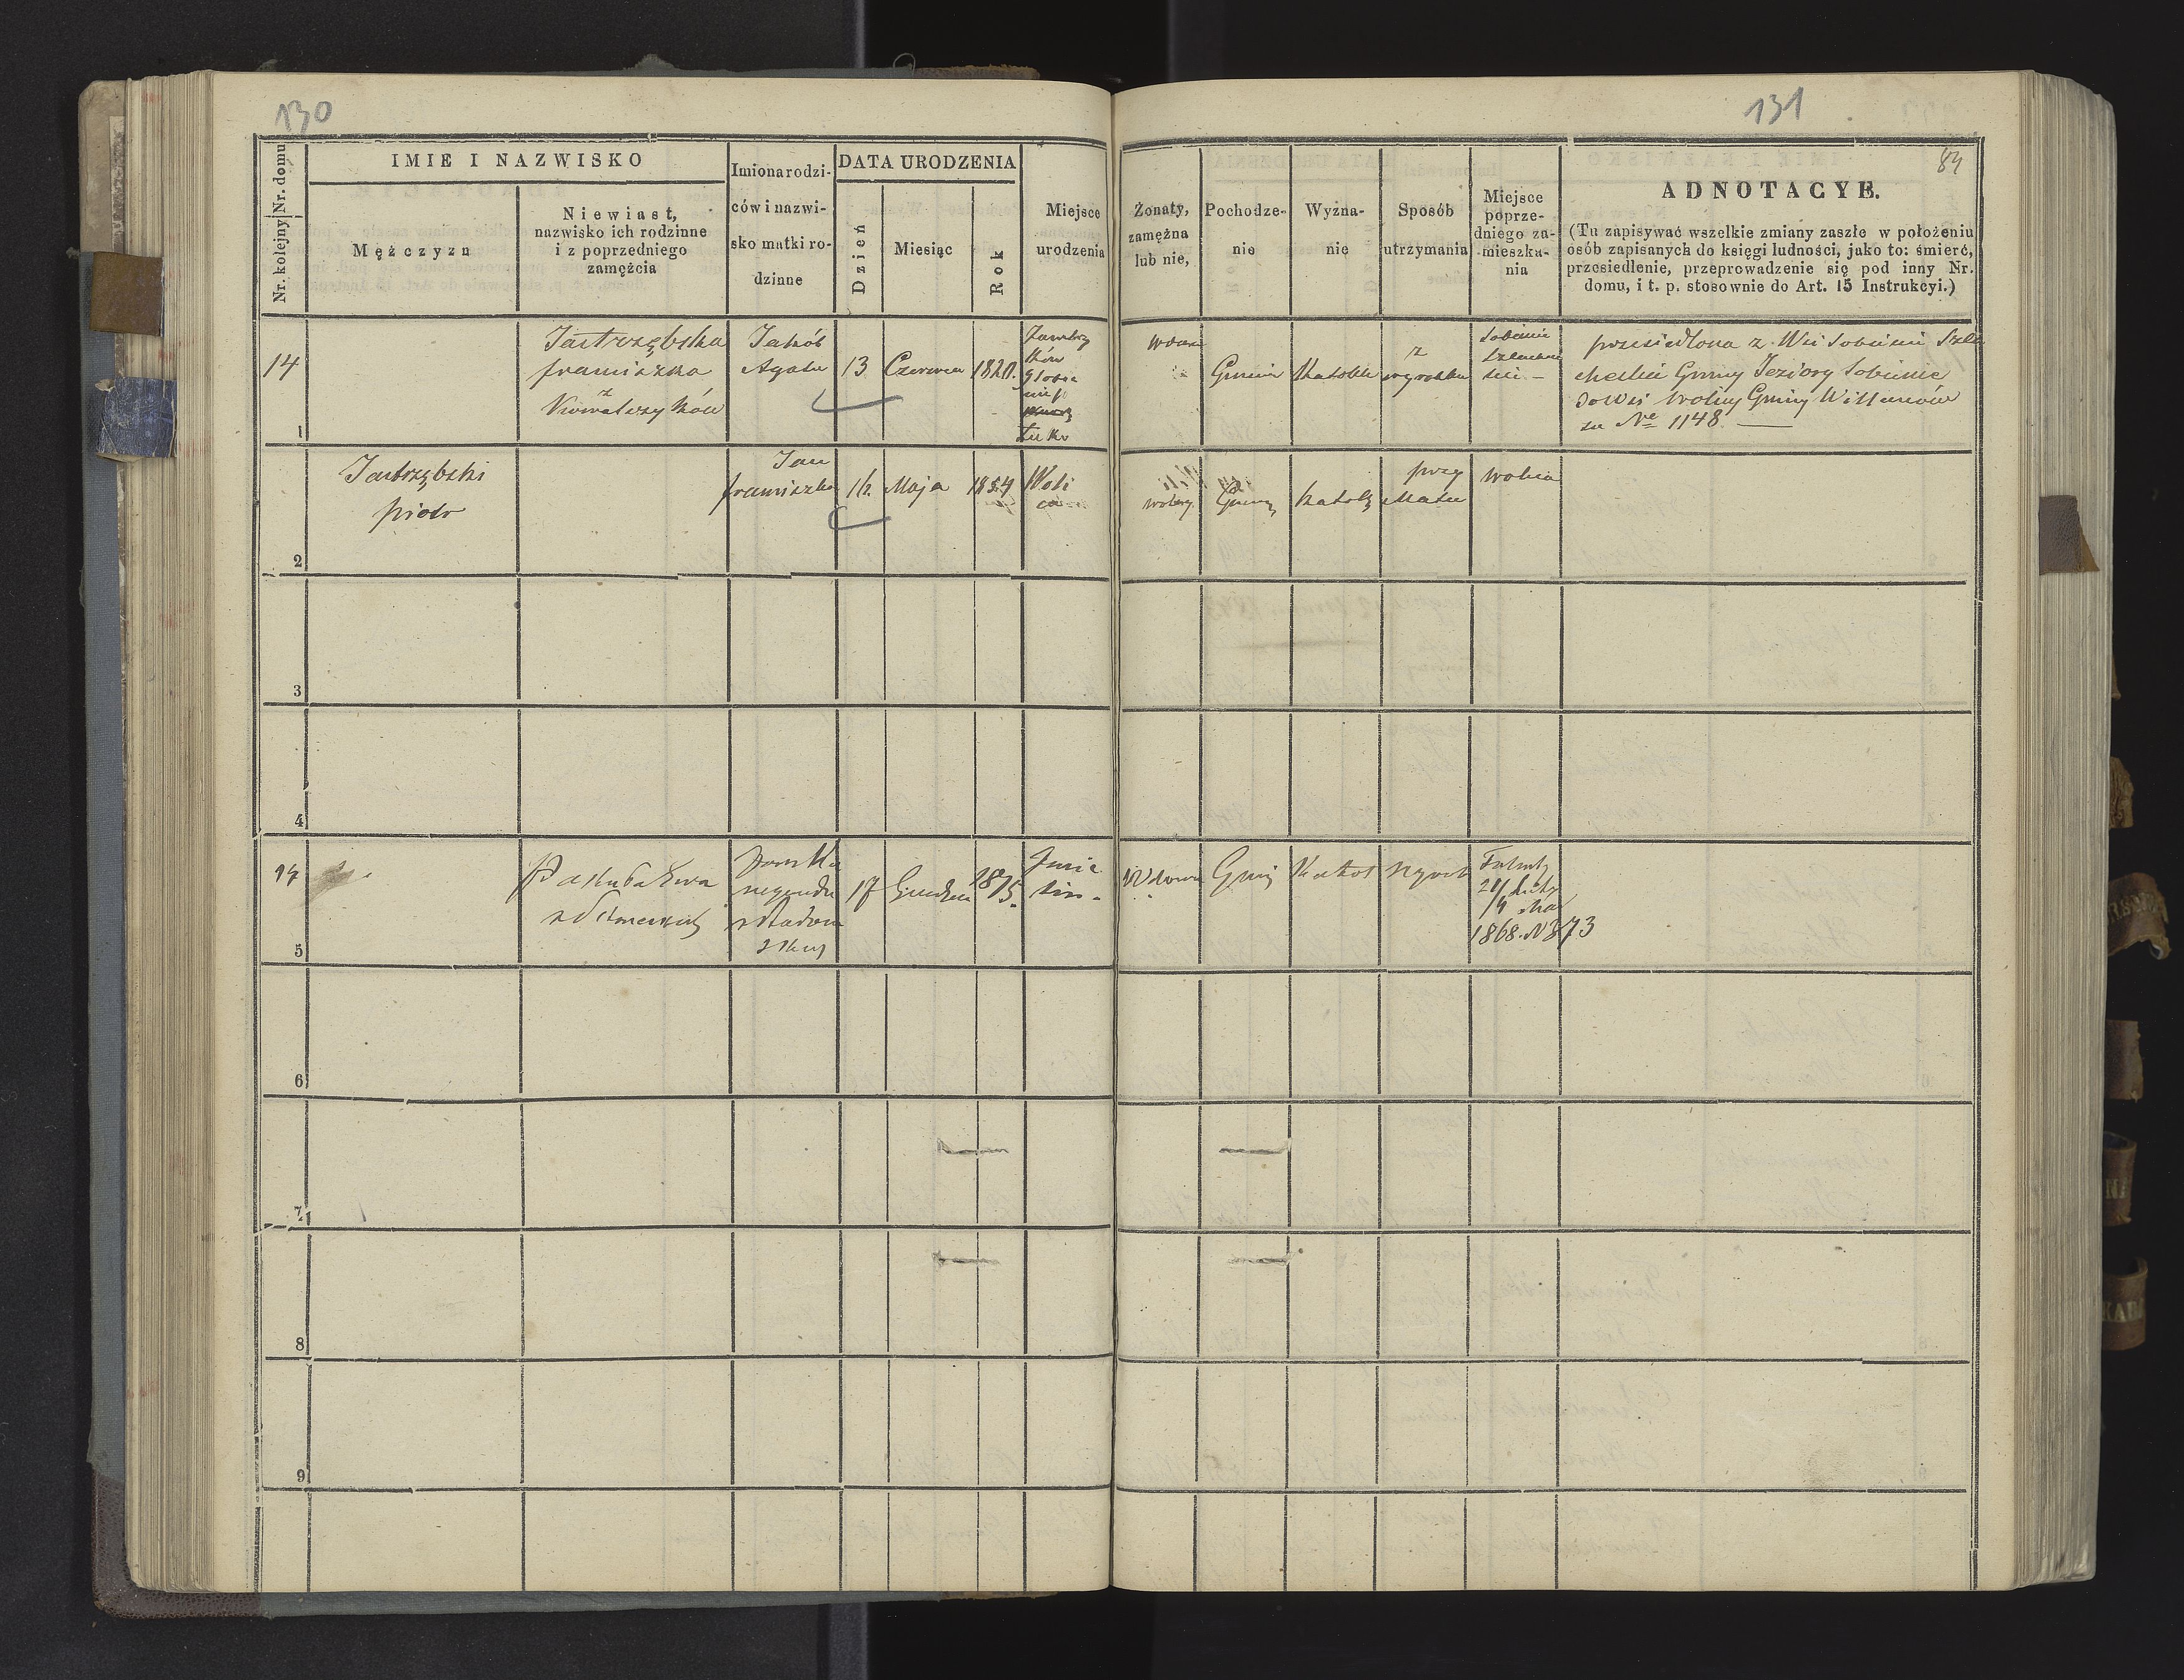 130
131
84
Nr. kolejny Nr. domu
IMIE I NAZWISKO
Mężczyzn
Niewiast,
nazwisko ich rodzinne
i z poprzedniego
zamężcia
Imiona rodzi-
ców i nazwi-
sko matki ro-
dzinne
DATA URODZENIA
Dzień
Miesiąc
Rok
Miejsce
urodzenia
Żonaty,
zamężna
lub nie,
Pochodze-
nie
Wyzna-
nie
Sposób
utrzymania
Miejsce
poprze-
dniego za-
mieszka-
nia
ADNOTACYE.
(Tu zapisywać wszelkie zmiany zaszłe w położeniu
osób zapisanych do księgi ludności, jako to: śmierć,
przesiedlenie, przeprowadzenie się pod inny Nr.
domu, i t. p. stosownie do Art. 15 Instrukcyi.)
14
1
Jastrzębska
franciszka
z
Kowalczyków
Jakób
Agata
13
Czerwca
1820.
Gmina
Katolik
z
wyrobku
Sobienie
Szlachec
kie
przesiedlona z Wsi Sobienie Szla
checkie Gminy Jeziory Sobienie
do Wsi Wolicy Gminy Willanów
za No 1148
2
Jastrzębski
piotr
Jan
franciszka
16.
Maja
1854
Woli
ca
wolny
Gminy
katolz
przy
Matce
wolica
3
4
14
5
Pakuba Ewa
17
Grudnia
1815.
Wdowa
Gmi
Katol
wyrob
1868. N 373
6
7
8
9